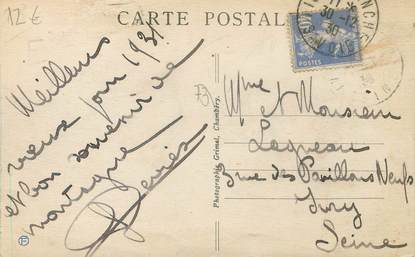 12€
CARTE POSTALE
30-12
30
POSTES
Meilleurs
vœux pour 1931
et bon souvenir de
montagne
Photographie Grimal, Chambéry.
Mme et Monsieur
Laqueau
rue des Pavillons Neufs
Ivry
Seine